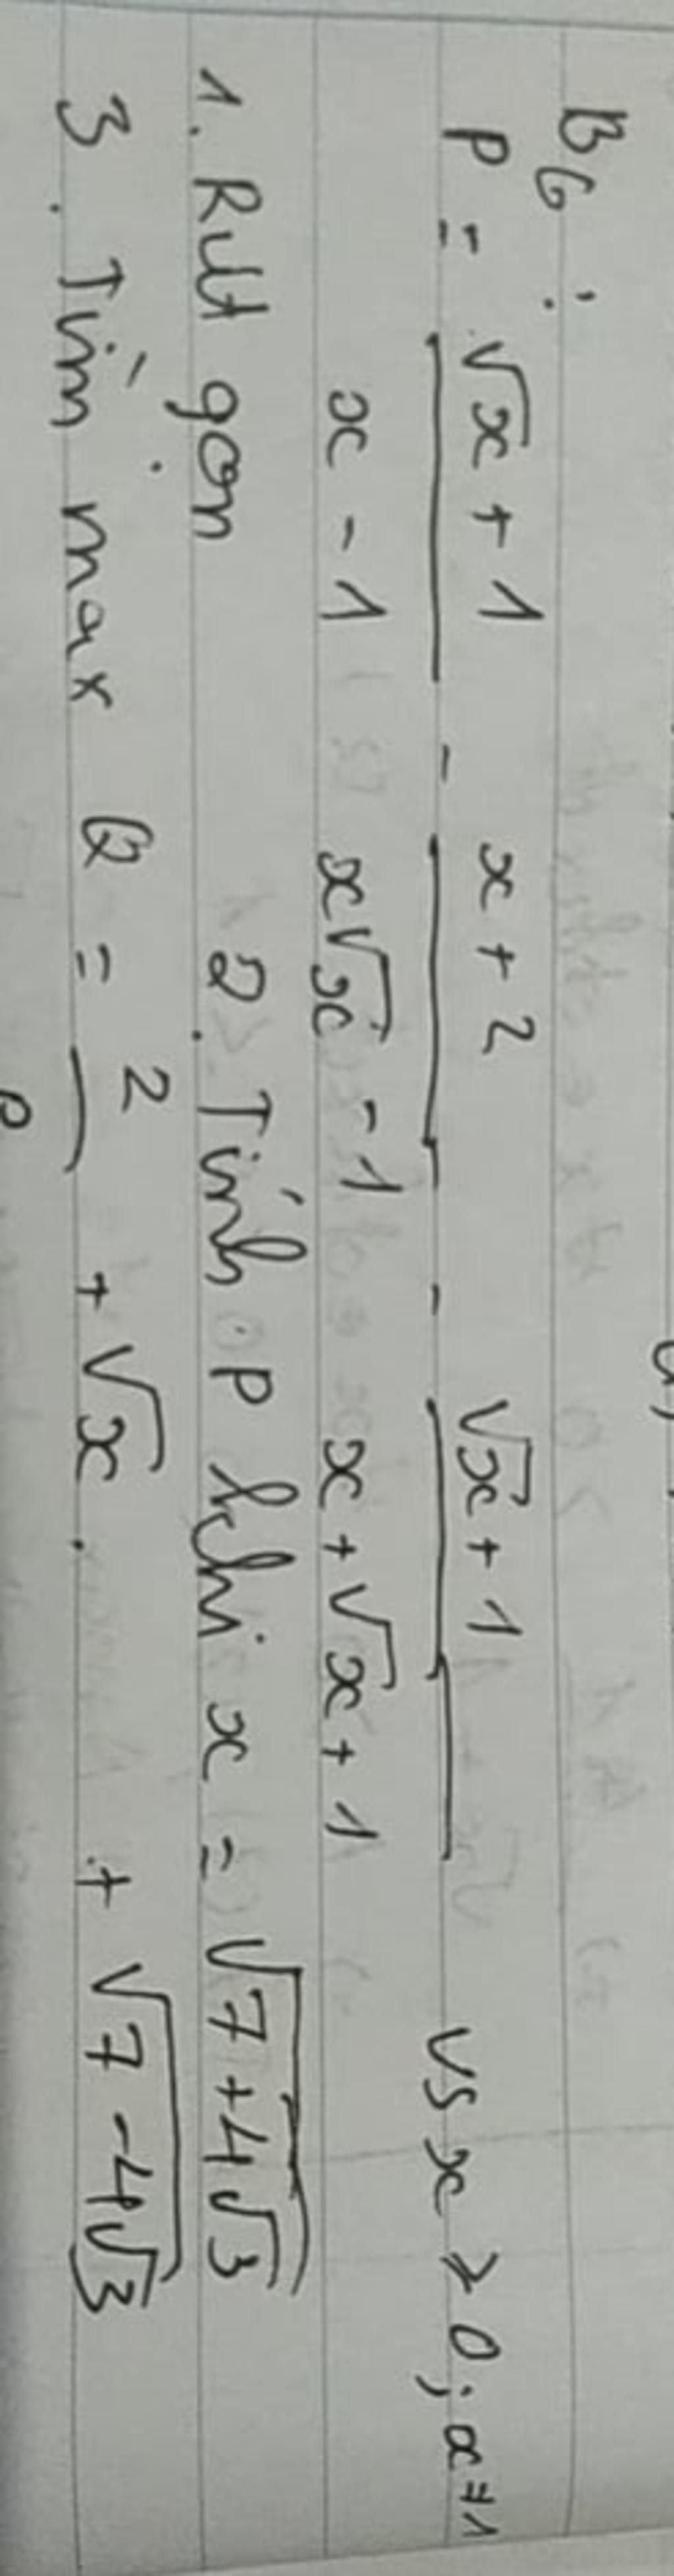 B6:
P = \frac{\sqrt{x} + 1}{x - 1} - \frac{x + 2}{x\sqrt{x} - 1} - \frac{\sqrt{x} + 1}{x + \sqrt{x} + 1} vs x ⩾ 0; x ≠ 1
1. Rút gọn 2. Tính P khi x = \sqrt{7 + 4\sqrt{3}}
+ \sqrt{7 - 4\sqrt{3}}
3. Tìm max Q = \frac{2}{P} + \sqrt{x}.